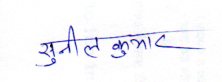 सुनील कुमार